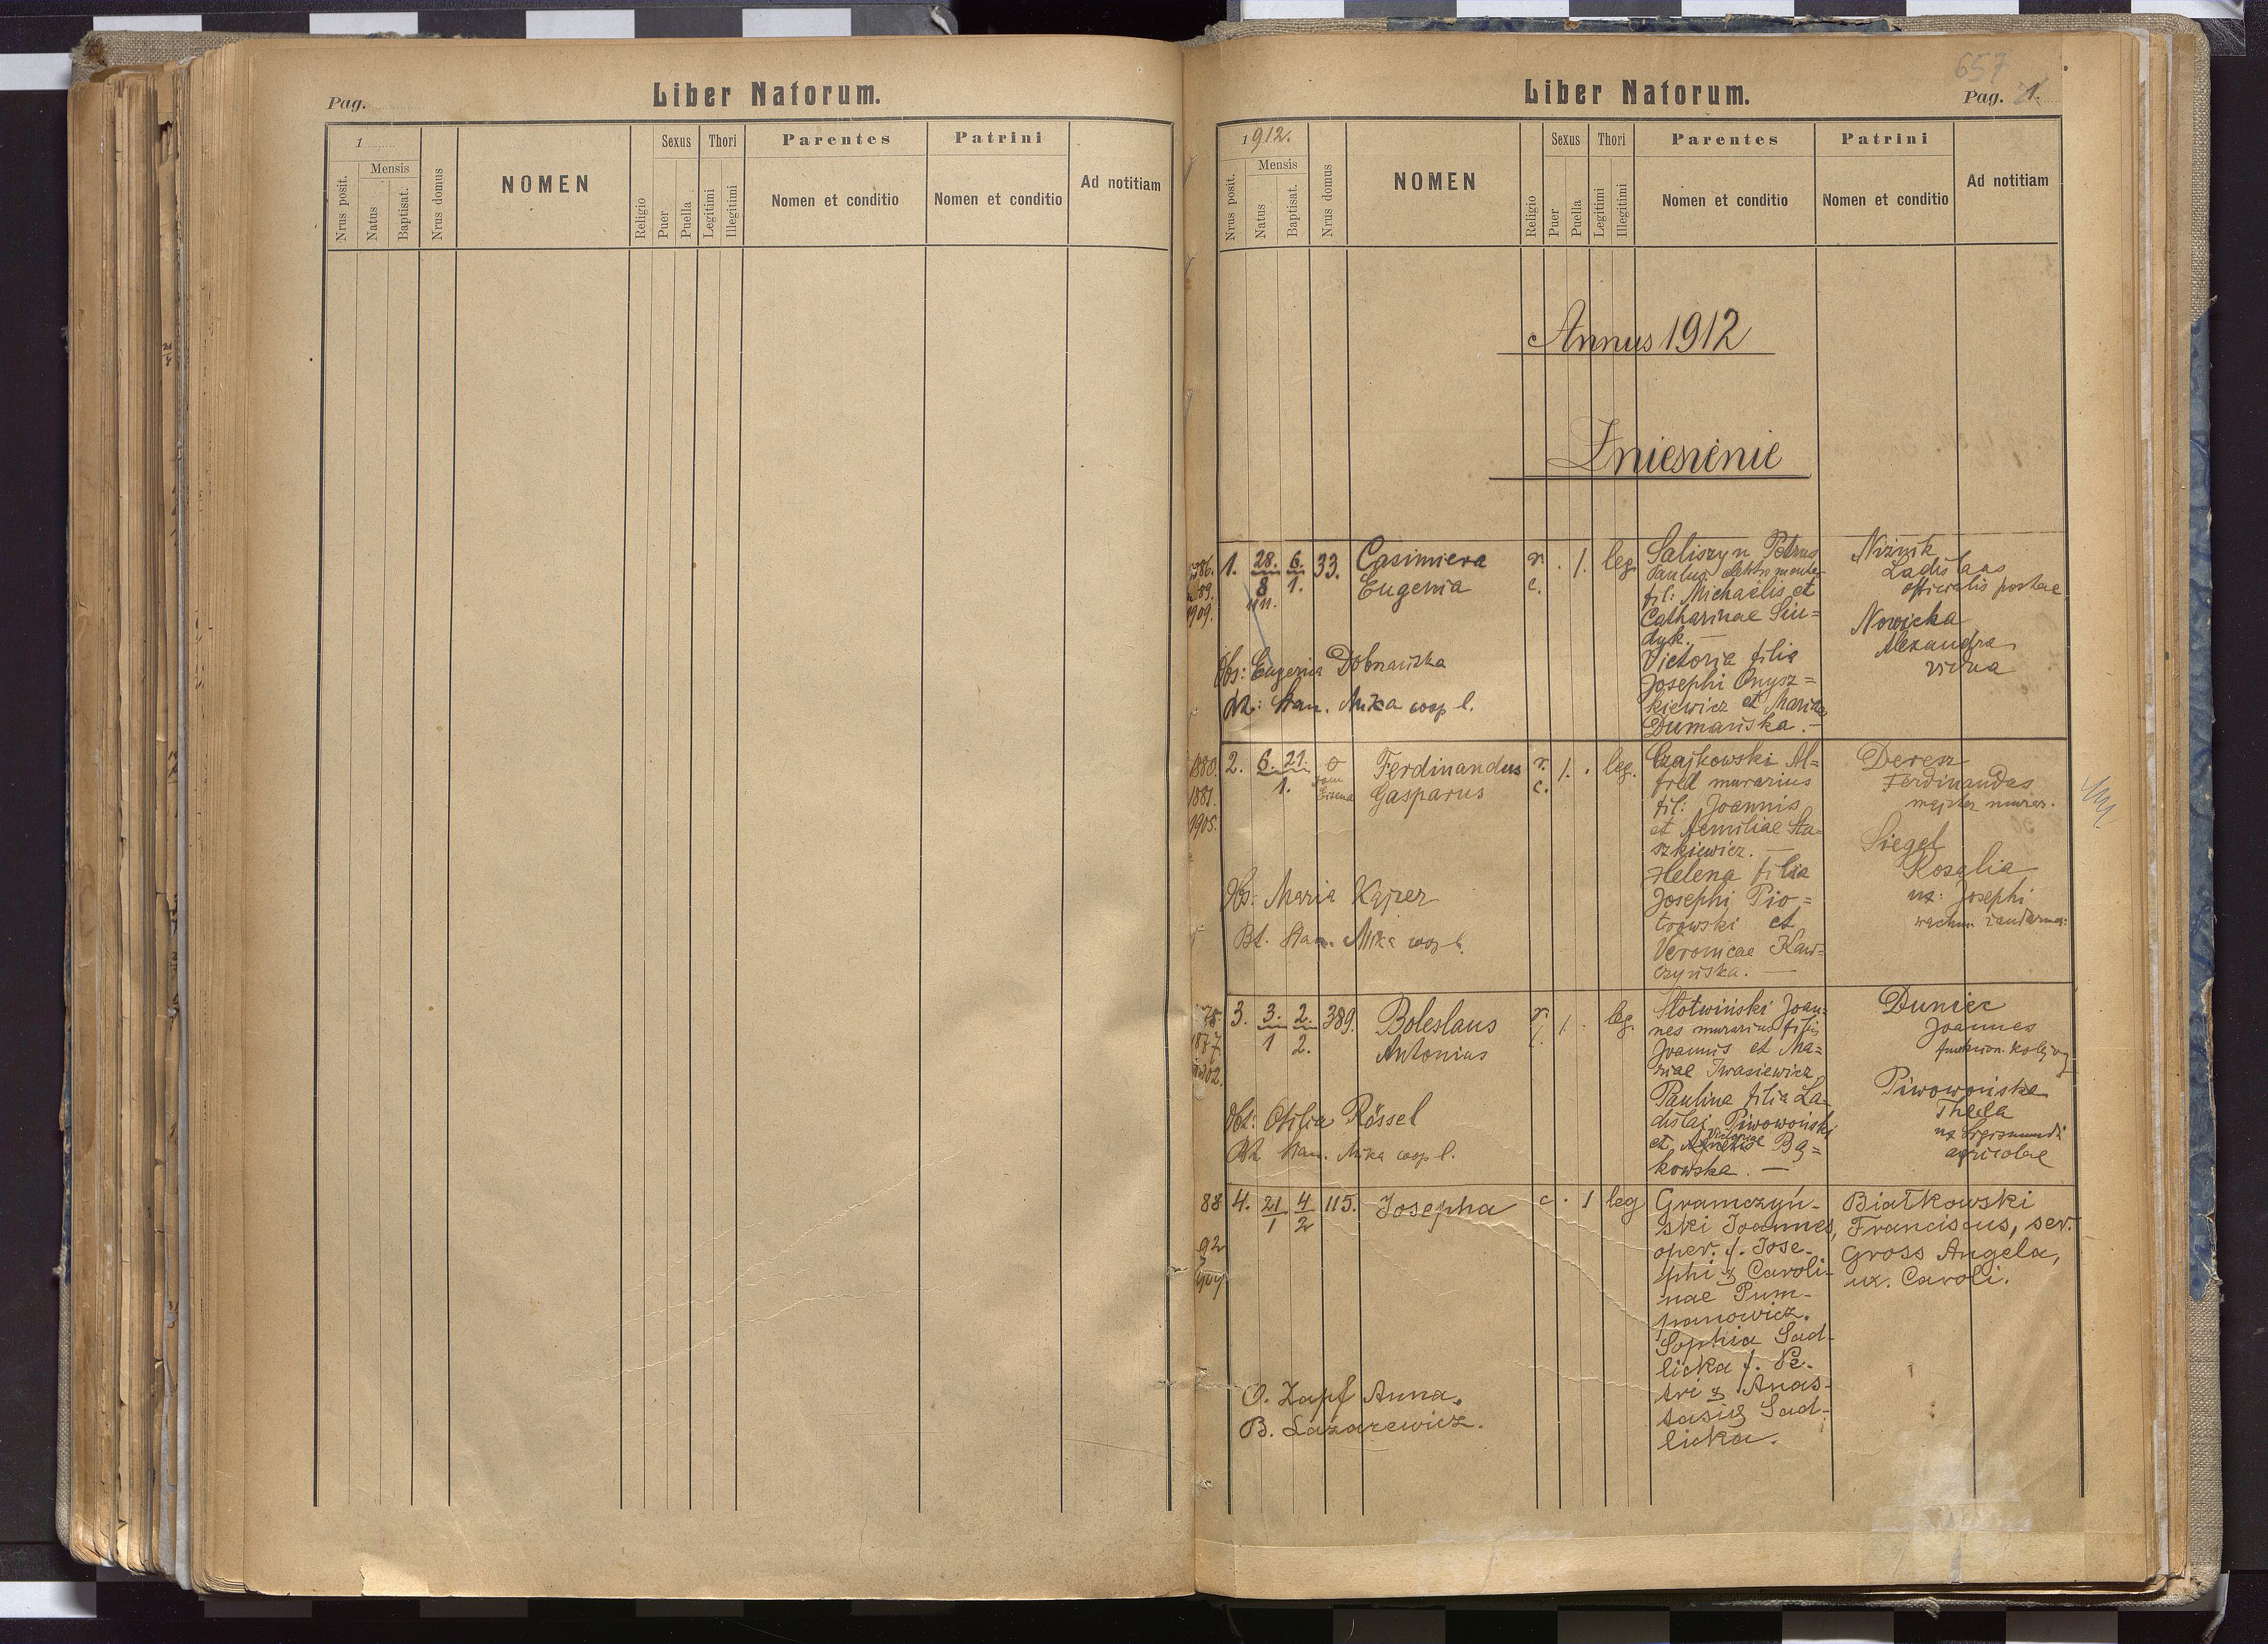 Liber Natorum.
Pag.
1
Mensis
Nrus posit.
Natus
Baptisat.
Nrus domus
NOMEN
Religio
Sexus
Puer
Puella
Thori
Legitimi
Illegitimi
Parentes
Nomen et conditio
Patrini
Nomen et conditio
Ad notitiam
657
Liber Natorum.
Pag. 1.
1912.
Mensis
Nrus posit.
Natus
Baptisat.
Nrus domus
NOMEN
Religio
Sexus
Puer
Puella
Thori
Legitimi
Illegitimi
Parentes
Nomen et conditio
Patrini
Nomen et conditio
Ad notitiam
Annus 1912
Zniesienie
89.
1909.
1. 28. 6. 33.
8 1.
Casimiera
Eugenia
r.
c.
. 1. leg.
Saliszyn Petrus
Paulus
fil: Michaëlis et
Catharinae Siu=
dyk. —
Victoria filia
Josephi Onysz=
kiewicz et Mariae
Dumańska. —
Niźnik
Ladislaus
officialis postae
Nowicka
Alexandra
vidua
Obs: Eugenia Dobrzańska
Bt: Stan. Mika coop l.
1880.
1881.
1905.
2. 6. 21.
1.
Ferdinandus
Gasparus
r.
c.
1. . leg.
Czajkowski Al=
fred murarius
fil: Joannis
et Aemiliae Sta=
szkiewicz. —
Helena filia
Josephi Pio=
trowski et
Veronicae Kaw=
czyńska. —
Deresz
Ferdinandus
majster murar.
Siegel
Rosalia
ux: Josephi
wachm. żandarmer:
Obs: Maria Kajzer
Bt. Stan. Mika coop l.
78.
1877.
1902.
3. 3. 2. 389.
1 2.
Boleslaus
Antonius
r.
c.
1. . leg.
Słotwiński Joan=
nes murarius filius
Joannis et Ma=
riae Iwasiewicz
Paulina filia La=
dislai Piwowoński
et Victoriae Bą=
kowska. —
Duniec
Joannes
funkcion. kolejowy
Piwowońska
Thecla
ux Sigismundi
agricolae
Obs: Otilia Rössel
Bt Stan. Mika coop l.
88
92
909
4. 21/1 4/2 115. Josepha c. . 1 leg
Gramczyń-
ski Joannes,
oper. f. Jose-
phi & Caroli-
nae Pum-
panowicz.
Sophia Sad-
licka f. Pe-
tri & Anas-
tasię Sad-
licka.
Białkowski
Franciscus, ser.
Gross Angela,
ux. Caroli.
O. Zapf Anna.
B. Łazarewicz.